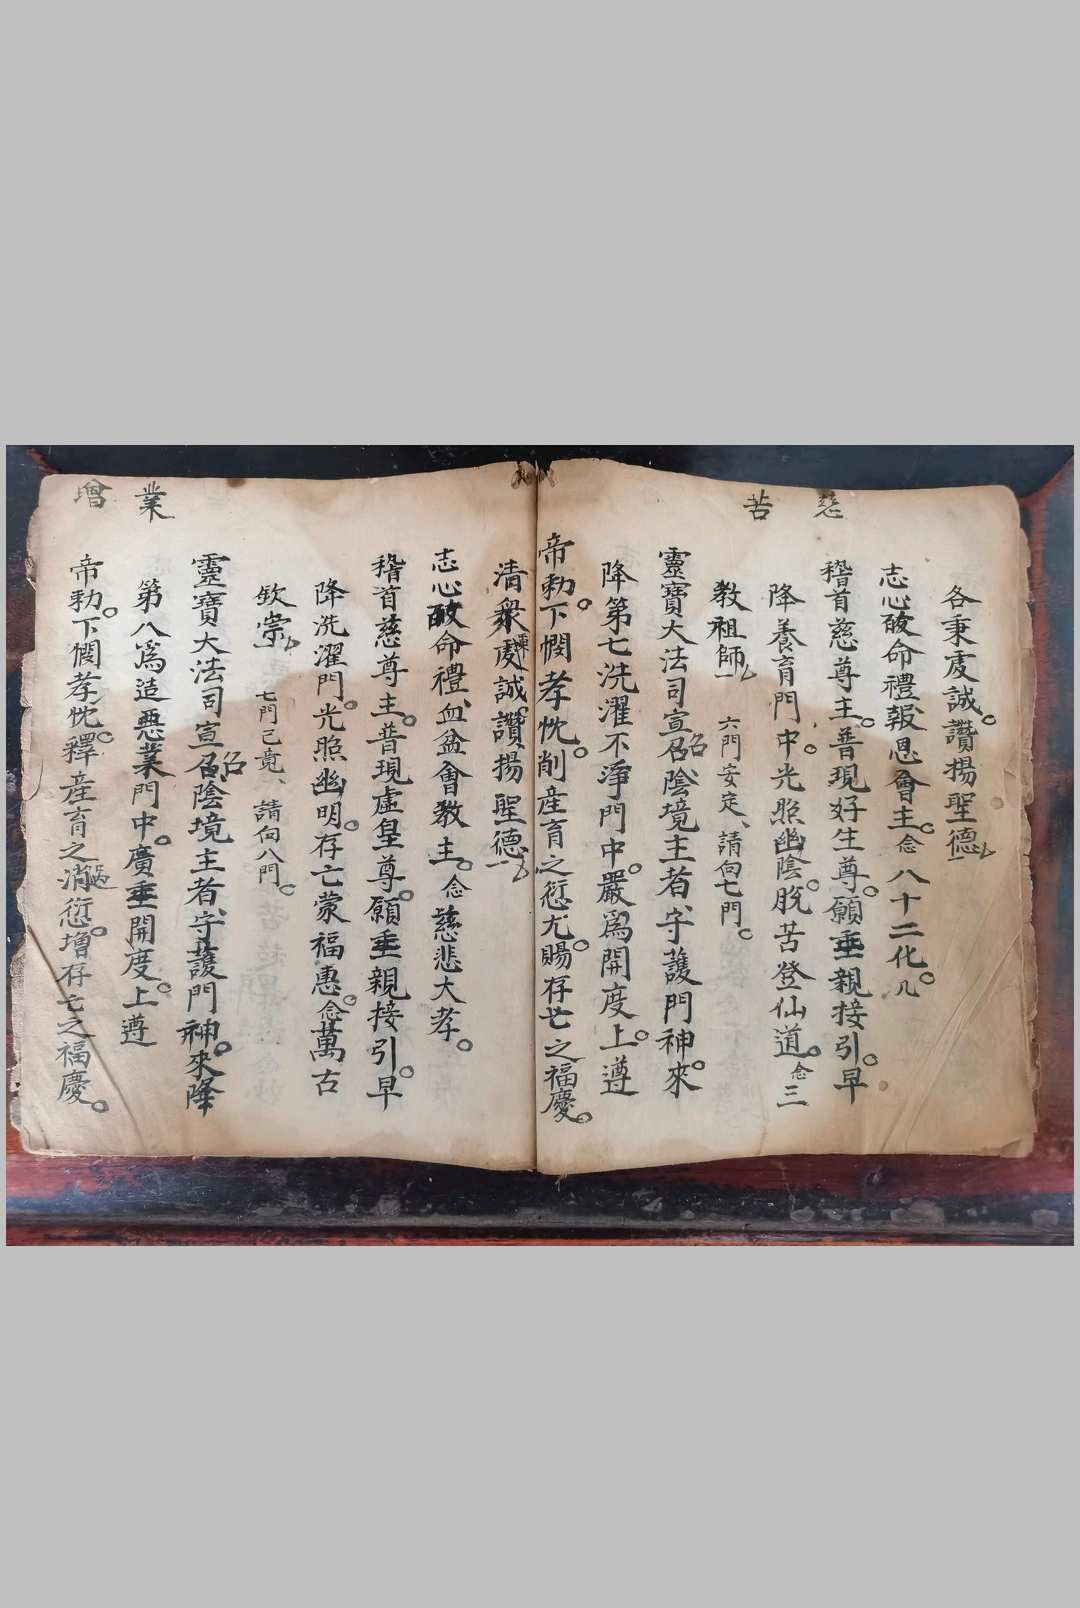 慈
苦
各秉虔誠。讚揚聖德
志心皈命禮、報恩會主。念八十二化。
稽首慈尊主。普現好生尊。願垂親接引。早
降養育門中。光照幽陰。脫苦登仙道。念三
教祖師 六門安定、請向七門。
靈寶大法司宣召陰境主者、守護門神。來
降第七洗濯不淨門中。嚴爲開度。上遵
帝勅。下憫孝忱。削產育之愆尤。賜存亡之福慶。
清衆虔誠、讚揚聖德
志心皈命禮、血盆會教主。念慈悲大孝。
稽首慈尊主。普現虛皇尊。願垂親接引。早
降洗濯門。光照幽明。存亡蒙福惠。念萬古
欽崇 七門已竟、請向八門。
業
增
靈寶大法司宣召陰境主者、守護門神。來降
第八爲造惡業門中。廣垂開度。上遵
帝勅。下憫孝忱。釋產育之愆消。增存亡之福慶。